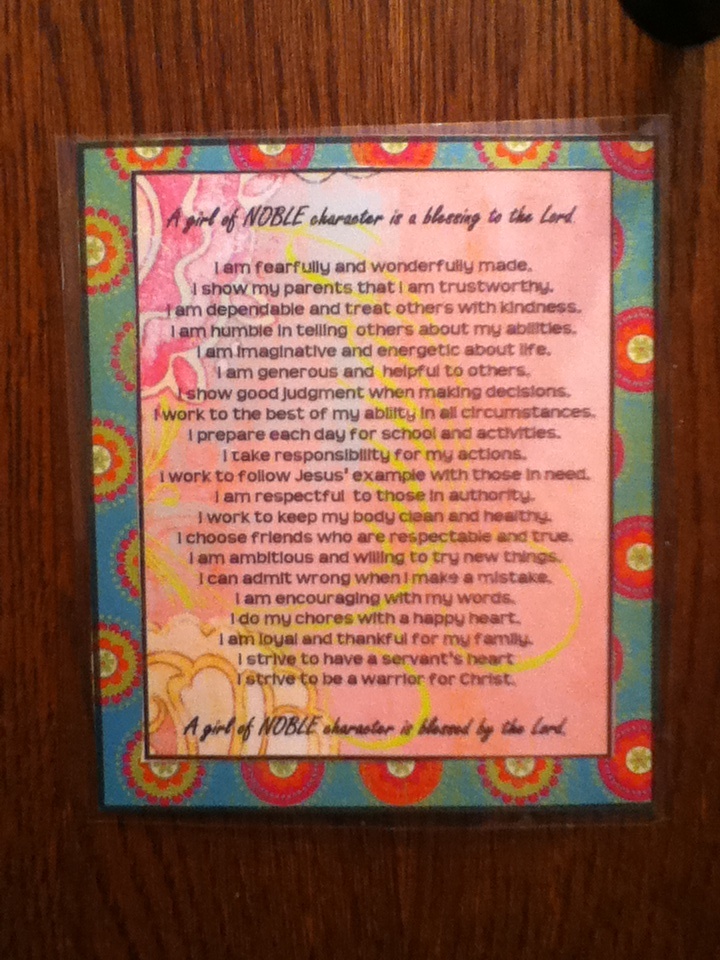 A girl of NOBLE character is a blessing to the Lord.
I am fearfully and wonderfully made.
I show my parents that I am trustworthy.
I am dependable and treat others with kindness.
I am humble in telling others about my abilities.
I am imaginative and energetic about life.
I am generous and helpful to others.
I show good judgment when making decisions.
I work to the best of my ability in all circumstances.
I prepare each day for school and activities.
I take responsibility for my actions.
I work to follow Jesus' example with those in need.
I am respectful to those in authority.
I work to keep my body clean and healthy.
I choose friends who are respectable and true.
I am ambitious and willing to try new things.
I can admit wrong when I make a mistake.
I am encouraging with my words.
I do my chores with a happy heart.
I am loyal and thankful for my family.
I strive to have a servant's heart
I strive to be a warrior for Christ.
A girl of NOBLE character is blessed by the Lord.